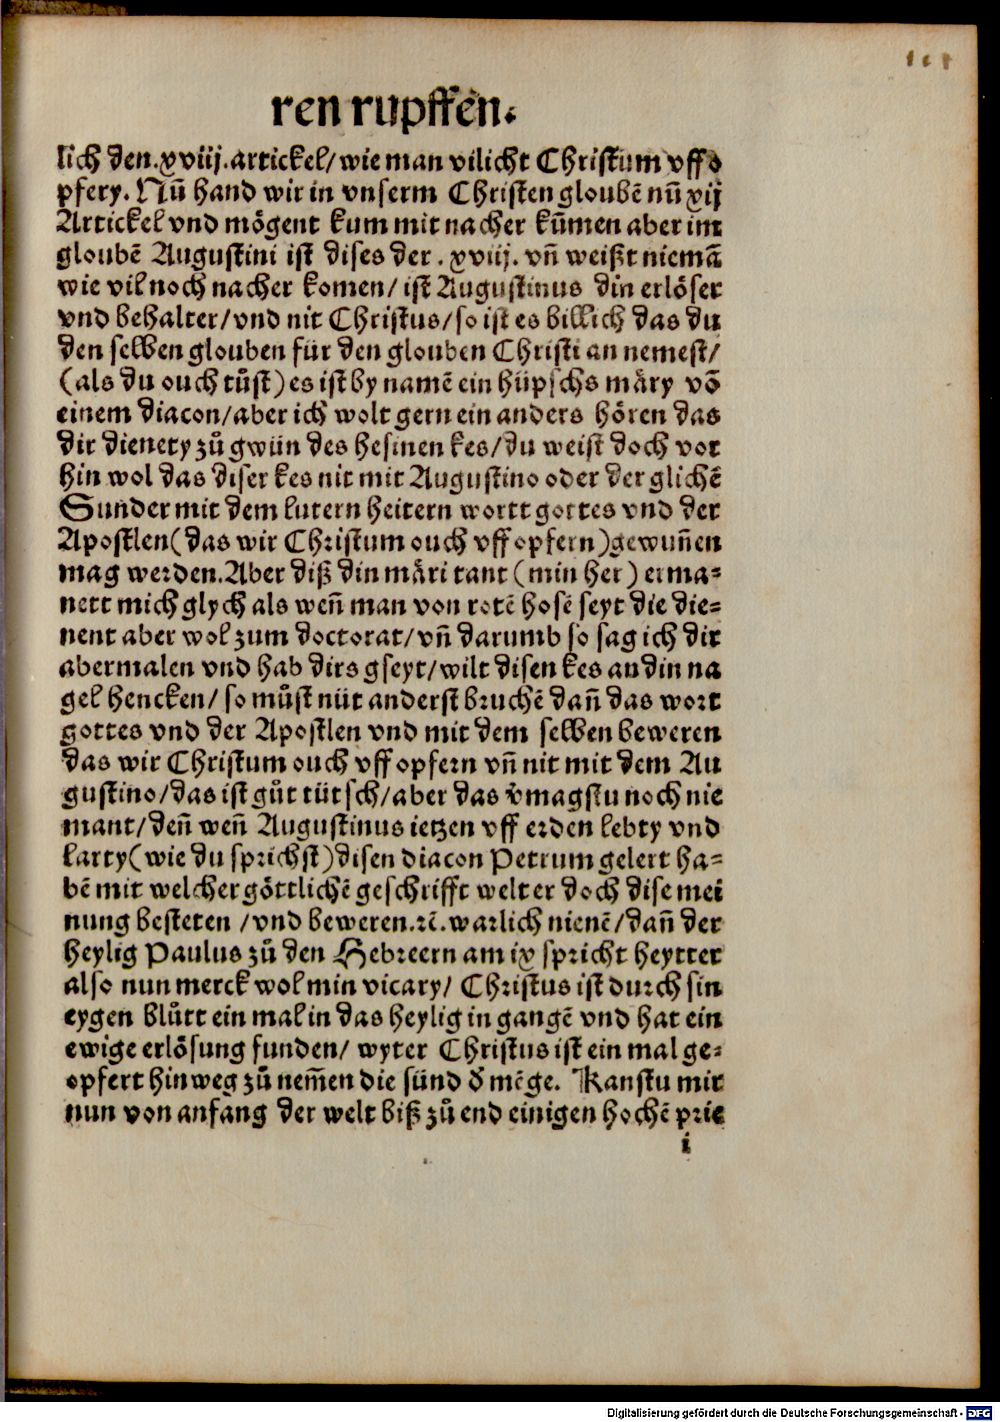 ren rupffen.
lich den.xviij.artickel/wie man vilicht Christum vff o
pfery. Nũ hand wir in vnserm Christen gloubē nũ xij
Artickel vnd mögent kum mit nacher kũmen aber im
gloubē Augustini ist dises der . xviij. vñ weißt niemā
wie vil noch nacher komen/ ist Augustinus din erlöser
vnd behalter/vnd nit Christus/so ist es billich das du
den selben glouben für den glouben Christi an nemest/
(als du ouch tůst) es ist by namē ein hüpschs märy võ
einem diacon/aber ich wolt gern ein anders hören das
dir dienety zů gwün des hesinen kes/du weist doch vor
hin wol das diser kes nit mit Augustino oder der glichē
Sunder mit dem lutern heitern wortt gottes vnd der
Apostlen(das wir Christum ouch vff opfern)gewuñen
mag werden.Aber diß din märi tant (min her) erma⸗
nett mich glych als weñ man von rotē hosē seyt die die⸗
nent aber wol zum doctorat/vñ darumb so sag ich dir
abermalen vnd hab dirs gseyt/wilt disen kes an din na
gel hencken/ so můst nüt anderst bruchē dañ das wort
gottes vnd der Apostlen vnd mit dem selben beweren
das wir Christum ouch vff opfern vñ nit mit dem Au
gustino/das ist gůt tütsch/aber das v̄magstu noch nie
mant/deñ weñ Augustinus ietzen vff erden lebty vnd
larty(wie du sprichst)disen diacon Petrum gelert ha⸗
bē mit welcher göttlichē geschrifft welt er doch dise mei
nung besteten /vnd beweren.ꝛc̄. warlich nienē/dañ der
heylig Paulus zů den Hebreern am ix spricht heytter
also nun merck wol min vicary/ Christus ist durch sin
eygen blůtt ein mal in das heylig in gangē vnd hat ein
ewige erlösung funden/ wyter Christus ist ein mal ge⸗
opfert hinweg zů nem̃en die sünd d̄ mēge. Kanstu mir
nun von anfang der welt biß zů end einigen hochē prie
i
Digitalisierung gefördert durch die Deutsche Forschungsgemeinschaft - DFG